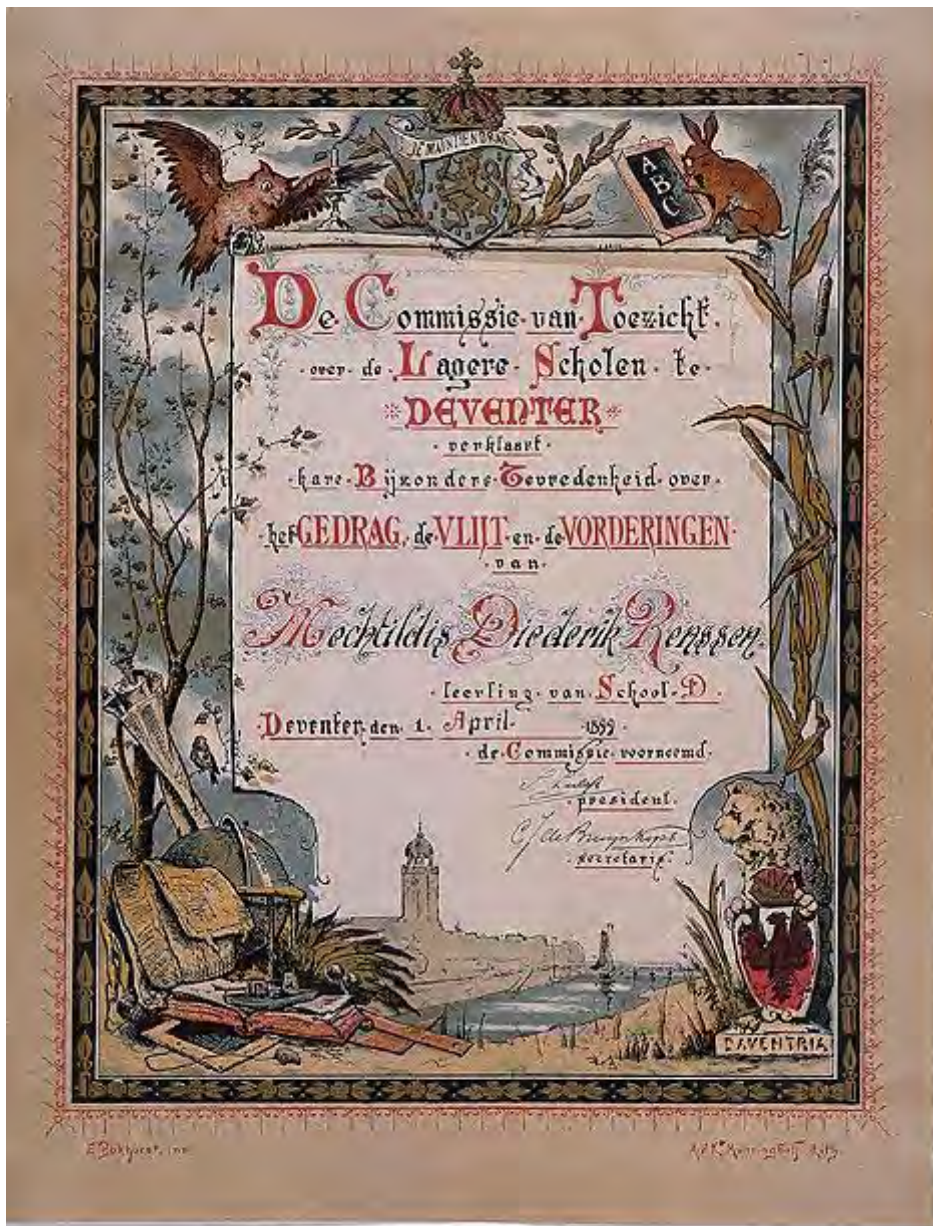 JE MAINTIENDRAI
A
B
C
De Commissie van Toezicht
over de Lagere Scholen te
DEVENTER
verklaart
hare Bijzondere Tevredenheid over
het GEDRAG, de VLIJT en de VORDERINGEN
van
Mechtildis Diederik Renssen.
leerling van School D.
Deventer, den 1. April 1889.
de Commissie voornoemd.
president.
C J de Bruyn Kops
secretaris.
DAVENTRIA